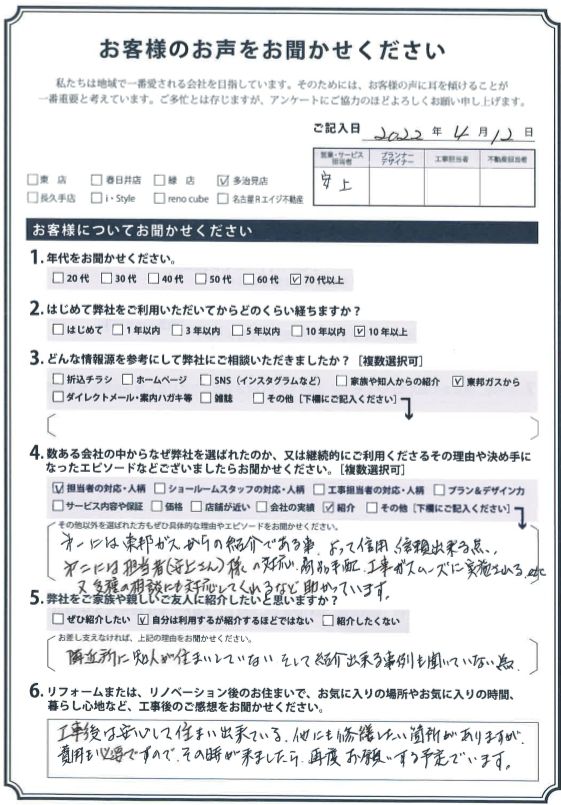 お客様のお声をお聞かせください
私たちは地域で一番愛される会社を目指しています。そのためには、お客様の声に耳を傾けることが
一番重要と考えています。ご多忙とは存じますが、アンケートにご協力のほどよろしくお願い申し上げます。
ご記入日 2022 年 4 月 12 日
営業・サービス担当者 プランナーデザイナー 工事担当者 不動産担当者
安上
□東 店 □春日井店 □緑 店 ☑多治見店
□長久手店 □i・Style □reno cube □名古屋Rエイジ不動産
お客様についてお聞かせください
1. 年代をお聞かせください。
□20代 □30代 □40代 □50代 □60代 ☑70代以上
2. はじめて弊社をご利用いただいてからどのくらい経ちますか?
□はじめて □1年以内 □3年以内 □5年以内 □10年以内 ☑10年以上
3. どんな情報源を参考にして弊社にご相談いただきましたか?［複数選択可］
□折込チラシ □ホームページ □SNS(インスタグラムなど) □家族や知人からの紹介 ☑東邦ガスから
□ダイレクトメール・案内ハガキ等 □雑誌 □その他［下欄にご記入ください］
4. 数ある会社の中からなぜ弊社を選ばれたのか、又は継続的にご利用くださるその理由や決め手に
なったエピソードなどございましたらお聞かせください。［複数選択可］
☑担当者の対応・人柄 □ショールームスタッフの対応・人柄 □工事担当者の対応・人柄 □プラン&デザイン力
□サービス内容や保証 □価格 □店舗が近い □会社の実績 ☑紹介 □その他［下欄にご記入ください］
その他以外を選ばれた方もぜひ具体的な理由やエピソードをお聞かせください。
第一には東邦ガスからの紹介である事、よって信用、信頼出来る点、
第二には担当者(安上さん)様の対応、部品手配、工事がスムーズに実施される、etc
又多種の相談にも対応してくれるなど助かっています。
5. 弊社をご家族や親しいご友人に紹介したいと思いますか?
□ぜひ紹介したい ☑自分は利用するが紹介するほどではない □紹介したくない
お差し支えなければ、上記の理由をお聞かせください。
隣近所に知人が住まいしていない そして紹介出来る事例も聞いていない点
6. リフォームまたは、リノベーション後のお住まいで、お気に入りの場所やお気に入りの時間、
暮らし心地など、工事後のご感想をお聞かせください。
工事後は安心して住まい出来ている、他にも修繕したい箇所がありますが、
費用も必要ですので、その時が来ましたら、再度お願いする予定でいます。